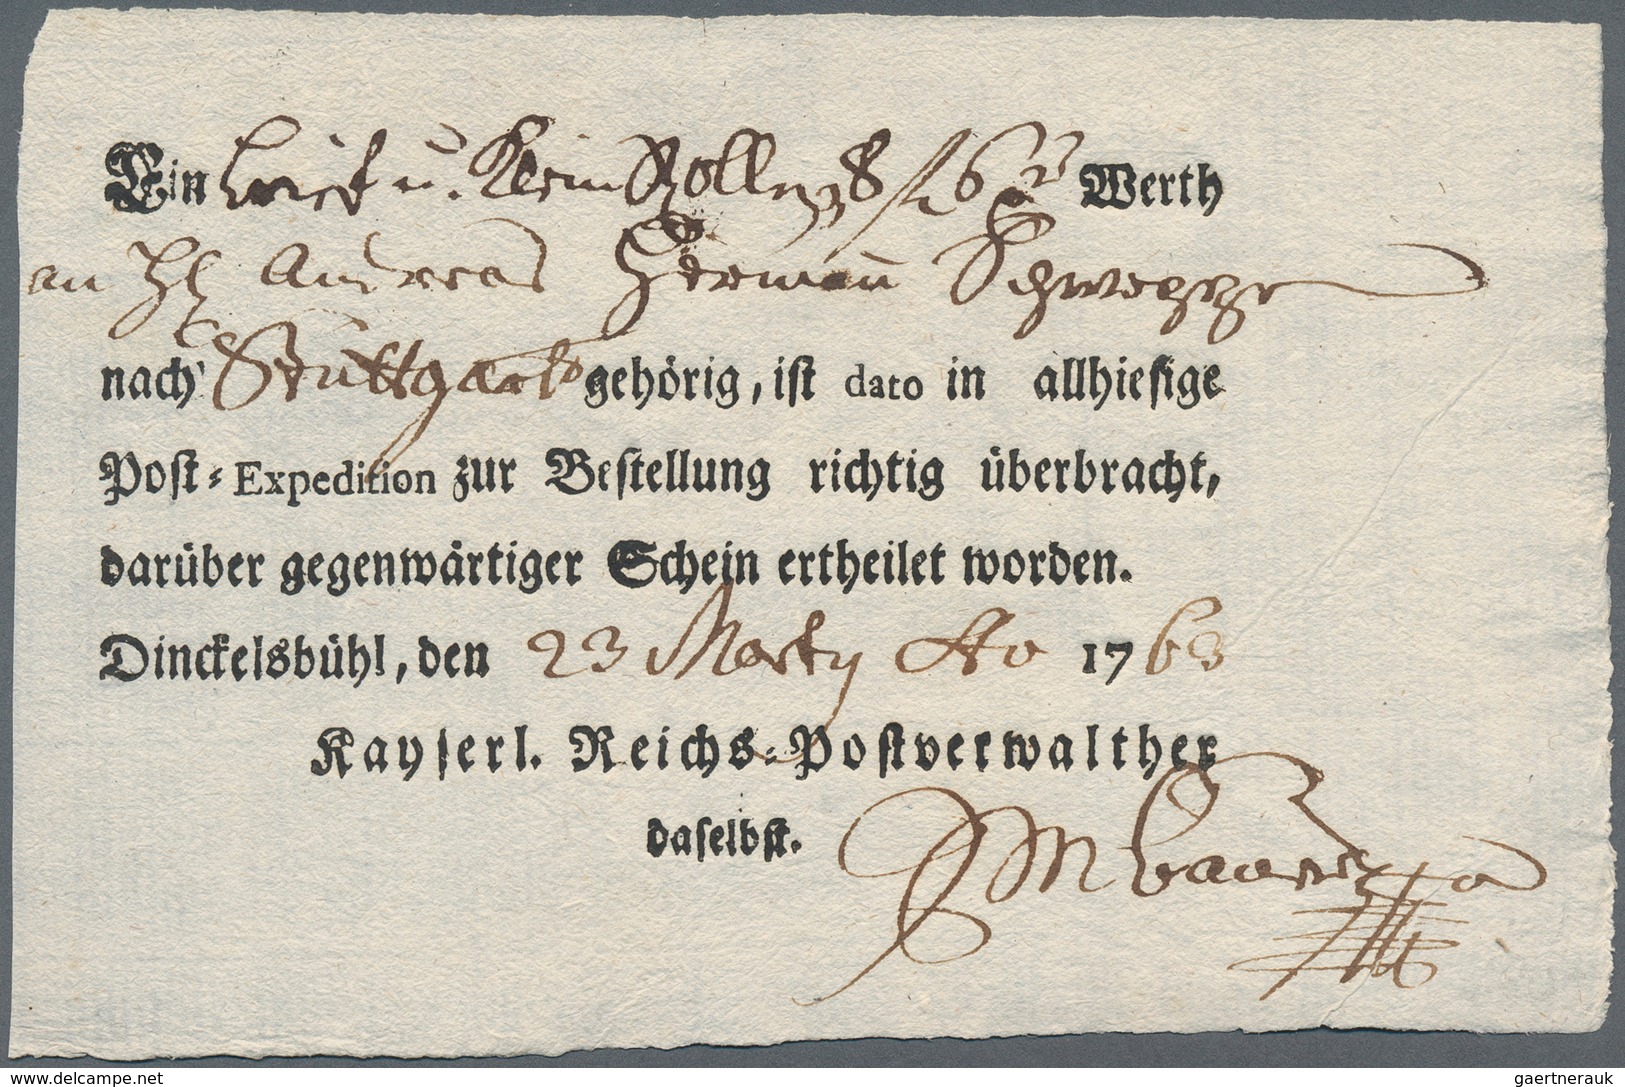 Ein brief u. klein Rollen Werth
an Andreas Herman Schweppe
nach Stuttgart gehörig, iſt dato in allhieſige
Poſt-Expedition zur Beſtellung richtig überbracht,
darüber gegenwärtiger Schein ertheilet worden.
Dinckelsbühl, den 23 Marty Ao 1763
Kayſerl. Reichs-Poſtverwalther
daſelbſt.
www.delcampe.net
gaertnerauk